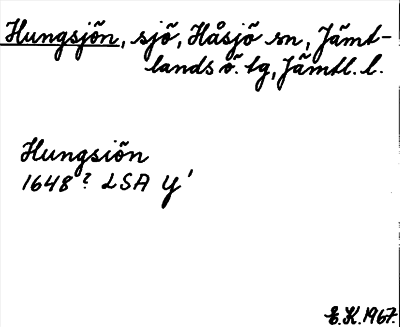 Hungsjön, sjö, Håsjö sn, Jämt-
lands ö. tg, Jämtl. l.
Hungsiön
1648? LSA Y'
E.K. 1967.